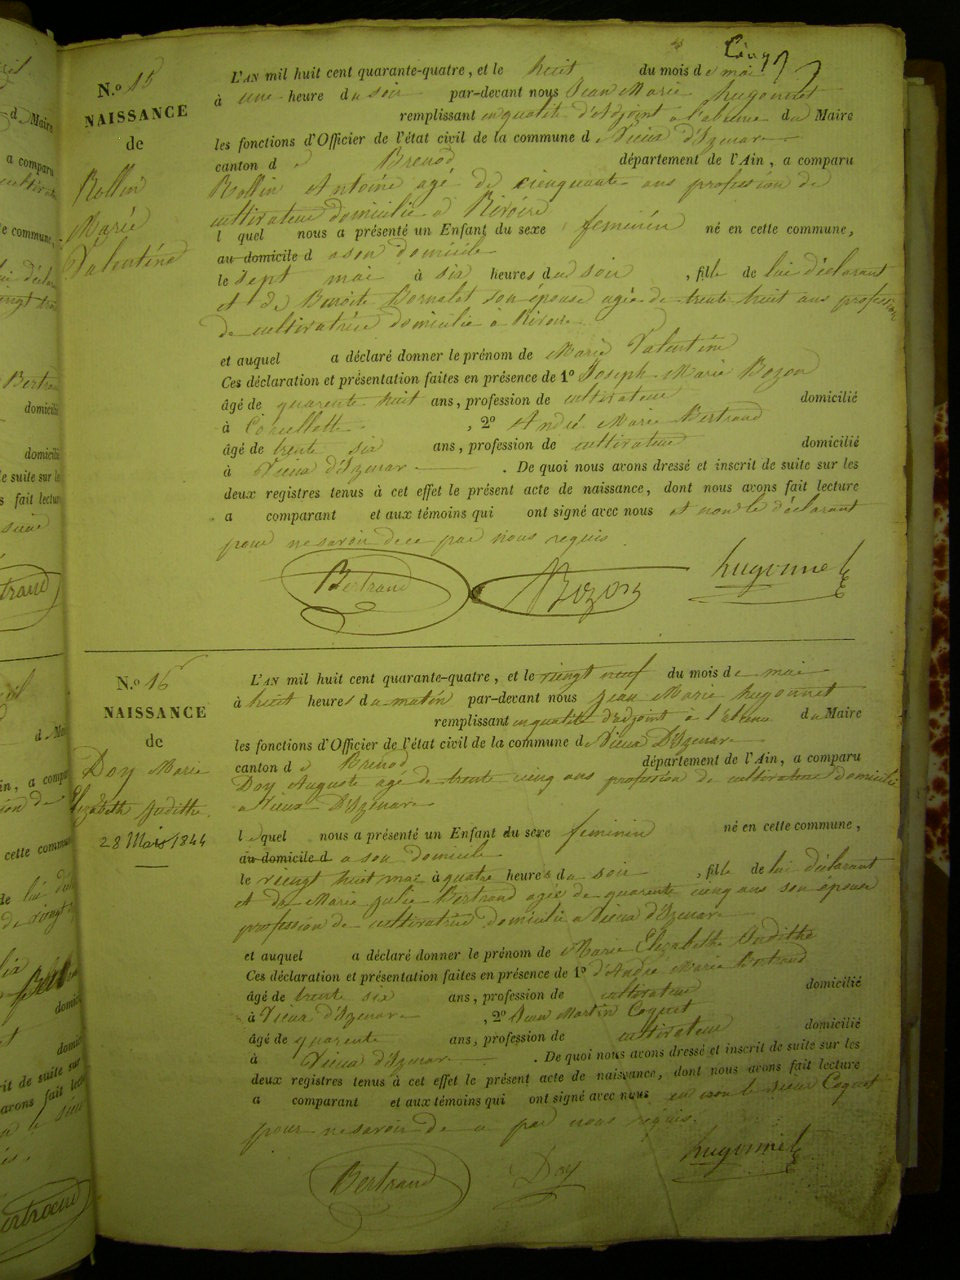 N.º 15
NAISSANCE
de
Rollin
Marie
Valentine
L'AN mil huit cent quarante-quatre, et le huit du mois de mai
à une heure du soir par-devant nous Jean Marie hugonnet
remplissant en qualité d'Adjoint à l'absence du Maire
les fonctions d'Officier de l'état civil de la commune de Vieux d'Izenave
canton de Brenod département de l'Ain, a comparu
Rollin Antoine agé de cienquante ans profession de
cultivateur domicilié à Rivoire
lequel nous a présenté un Enfant du sexe feminin né en cette commune,
au domicile d a son domicile
le sept mai à six heures du soir, fille de lui déclarant
et de Benoite son épouse agée de trente huit ans profession
de cultivatrice domicilié à Rivoire
et auquel a déclaré donner le prénom de Marie Valentine
Ces déclaration et présentation faites en présence de 1º Joseph Marie Bozon
âgé de quarente huit ans, profession de cultivateur domicilié
à , 2º André Marie Bertrand
âgé de trente six ans, profession de cultivateur domicilié
à Vieux d'Izenave . De quoi nous avons dressé et inscrit de suite sur les
deux registres tenus à cet effet le présent acte de naissance, dont nous avons fait lecture
a comparant et aux témoins qui ont signé avec nous et non le déclarant
pour ne savoir de ce par nous requis
Bertrand Bozon hugonnet
N.º 16
NAISSANCE
de
Doy Marie
Elizabeth Juditthe
28 Mai 1844
L'AN mil huit cent quarante-quatre, et le viengt neuf du mois de mai
à huit heures du matin par-devant nous Jean Marie hugonnet
remplissant en qualité d'adjoint à l'absence du Maire
les fonctions d'Officier de l'état civil de la commune de Vieux D'Izenave
canton de Brenod département de l'Ain, a comparu
Doy Auguste agé de trente cienq ans profession de cultivateur domicilié
a Vieux D'Izenave
lequel nous a présenté un Enfant du sexe feminin né en cette commune,
au domicile d a son domicile
le viengt huit mai à quatre heures du soir, fille de lui déclarant
et de Marie Julie Bertrand agée de quarente cienq ans son épouse
profession de cultivatrice domicilié a Vieux d'Izenave
et auquel a déclaré donner le prénom de Marie Elizabethe Juditthe
Ces déclaration et présentation faites en présence de 1º d'André Marie Bertrand
âgé de trente six ans, profession de cultivateur domicilié
à Vieux d'Izenave, 2º Jean Martin Coquet
âgé de quarente ans, profession de cultivateur domicilié
à Vieux d'Izenave . De quoi nous avons dressé et inscrit de suite sur les
deux registres tenus à cet effet le présent acte de naissance, dont nous avons fait lecture
a comparant et aux témoins qui ont signé avec nous et non le sieur Coquet
pour ne savoir de ce par nous requis.
Bertrand Doy hugonnet